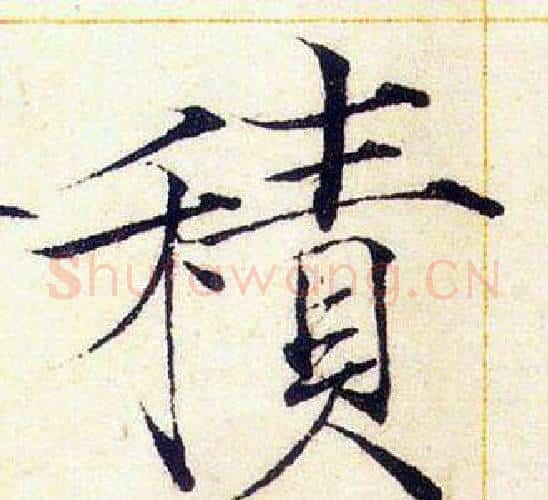 積
Shufawang.CN